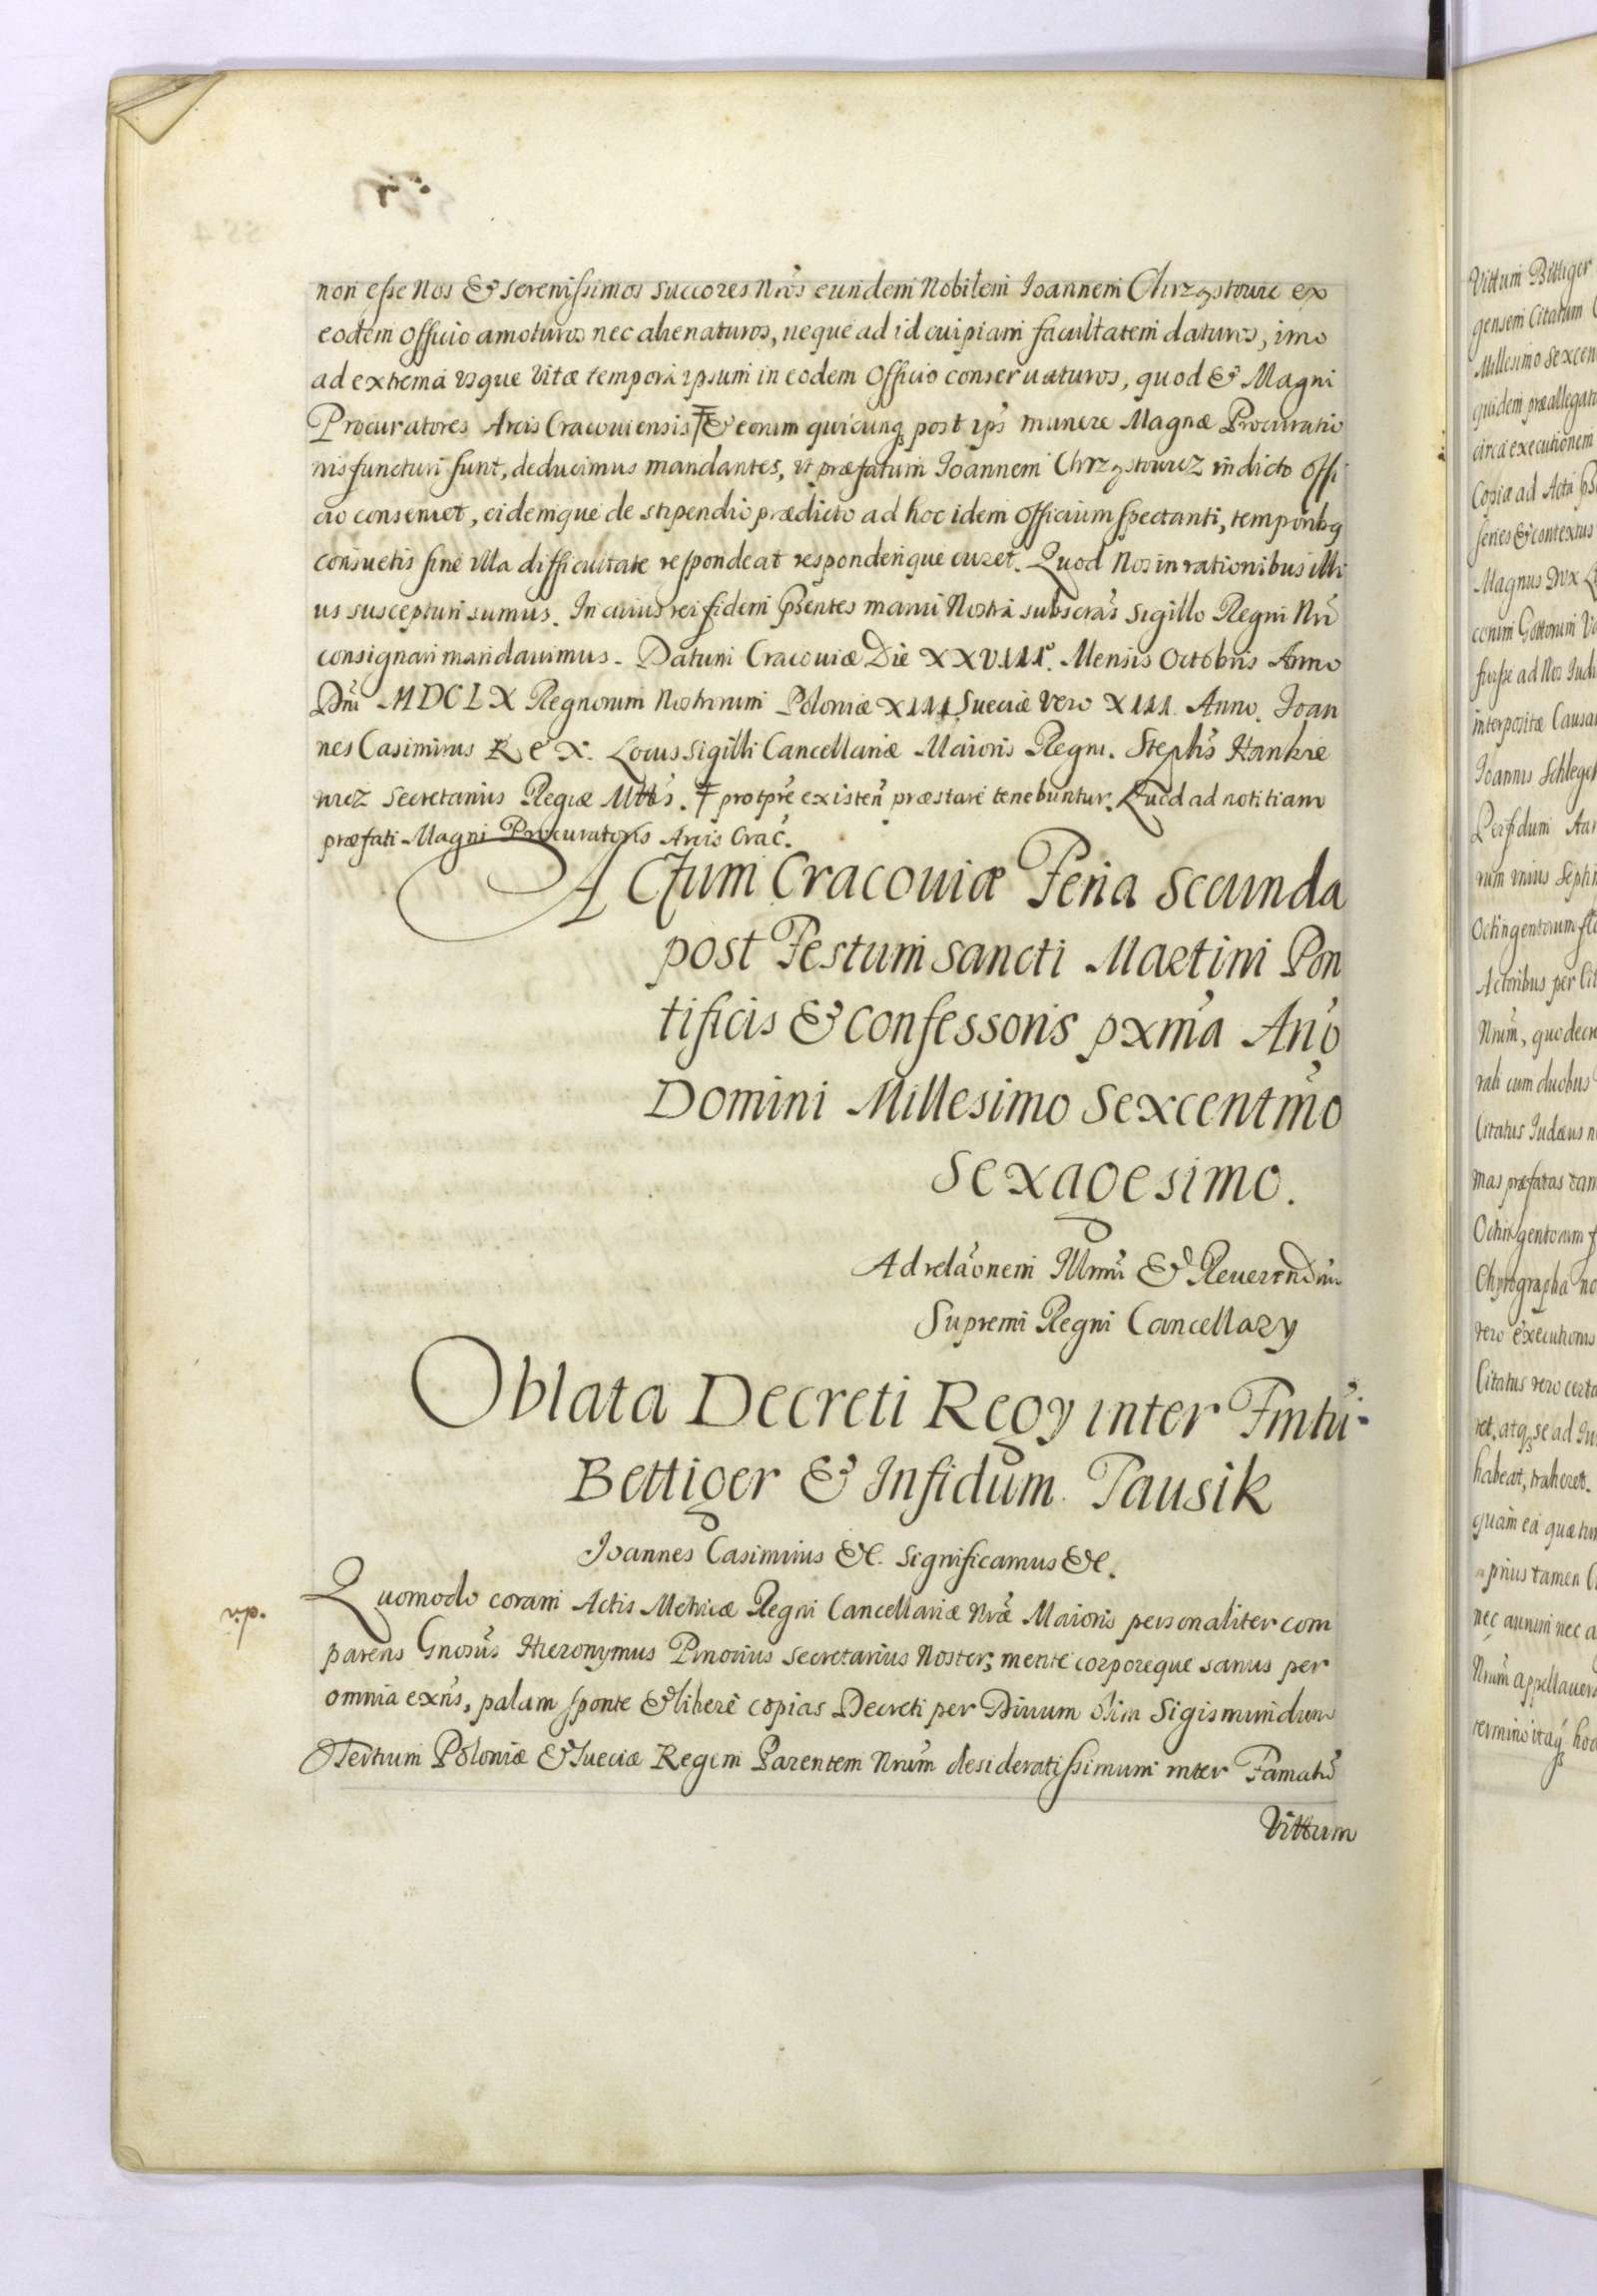 non esse Nos & serenissimos succores Nr̃os eundem Nobilem Joannem Chrzystowic ex
eodem officio amoturos nec alienaturos, neque ad id cuipiam facultatem daturos, imo
ad extrema usque vitæ tempora ipsum in eodem Officio conservaturos, quod & Magni
Procuratores Arcis Cracouiensis ‡ & eorum quicunq; post ips̃ munere Magnæ Procuratio
nis functuri sunt, deducimus mandantes, ut præfatum Joannem Chrzystowicz in dicto offi
cio conservet, eidemque de stipendio prædicto ad hoc idem Officium spectanti, temporibq;
consuetis sine ulla difficultate respondeat responderique curet. Quod Nos in rationibus illi
us suscepturi sumus. In cuius rei fidem p̃sentes manu Nostra subscras̃ sigillo Regni Nrĩ
consignari mandauimus. Datum Cracouiæ Die XXVIII. Mensis Octobris Anno
Dnĩ MDCLX Regnorum Nostrorum Poloniæ XIII Sueciæ Vero XIII Anno. Joan
nes Casimirus ReX. Locus Sigilli Cancellariæ Maioris Regni. Stephs̃ Hankie
wicz Secretarius Regiæ Mttis̃. ‡ pro tpre existeñ præstare tenebuntur. Quod ad notitiam
præfati Magni Procuratoris Arcis Crac̃.
ACtum Cracouiæ Feria Secunda
post Festum Sancti Martini Pon
tificis & Confessoris pxmã Anõ
Domini Millesimo Sexcentmõ
Sexagesimo.
Ad relãonem Illmĩ & Reuerendmĩ
Supremi Regni Cancellary
Oblata Decreti Regy inter Fmtũ
Bettiger & Infidum Pausik
Joannes Casimirus &c. Significamus &c.
Quomodo coram Actis Metricæ Regni Cancellariæ Nrãe Maioris personaliter com
parens Gnosũs Hieronymus Pinocius Secretarius Noster, mente corporeque sanus per
omnia exñs, palam sponte & libere copias Decreti per Divum olim Sigismundum
Tertium Poloniæ & Sueciæ Regem Parentem Nrũm desideratissimum inter Famatũ
Vittum
Vittum Bittiger
gensem Citatum
Millesimo Sexcen
quidem præallegat
circa executionem
Copia ad Acta
series & contextus
Magnus Dux
corum Gottorum
fuisse ad Nos Iud
interpositæ Causa
Joannis Schlegel
Perfidum
rum unius Septin
Octingentorum
Actoribus per
Nrũm, quo decre
rali cum duobus
Citatus Iudæus
mas præfatas
Octingentorum
Chyrographa no
vero executionis
Citatus vero
ret, atq; se ad
habeat, traheret.
quam ea quæ
prius tamen
nec aurum nec a
Nrũm appellaver
termino itaq; hoc